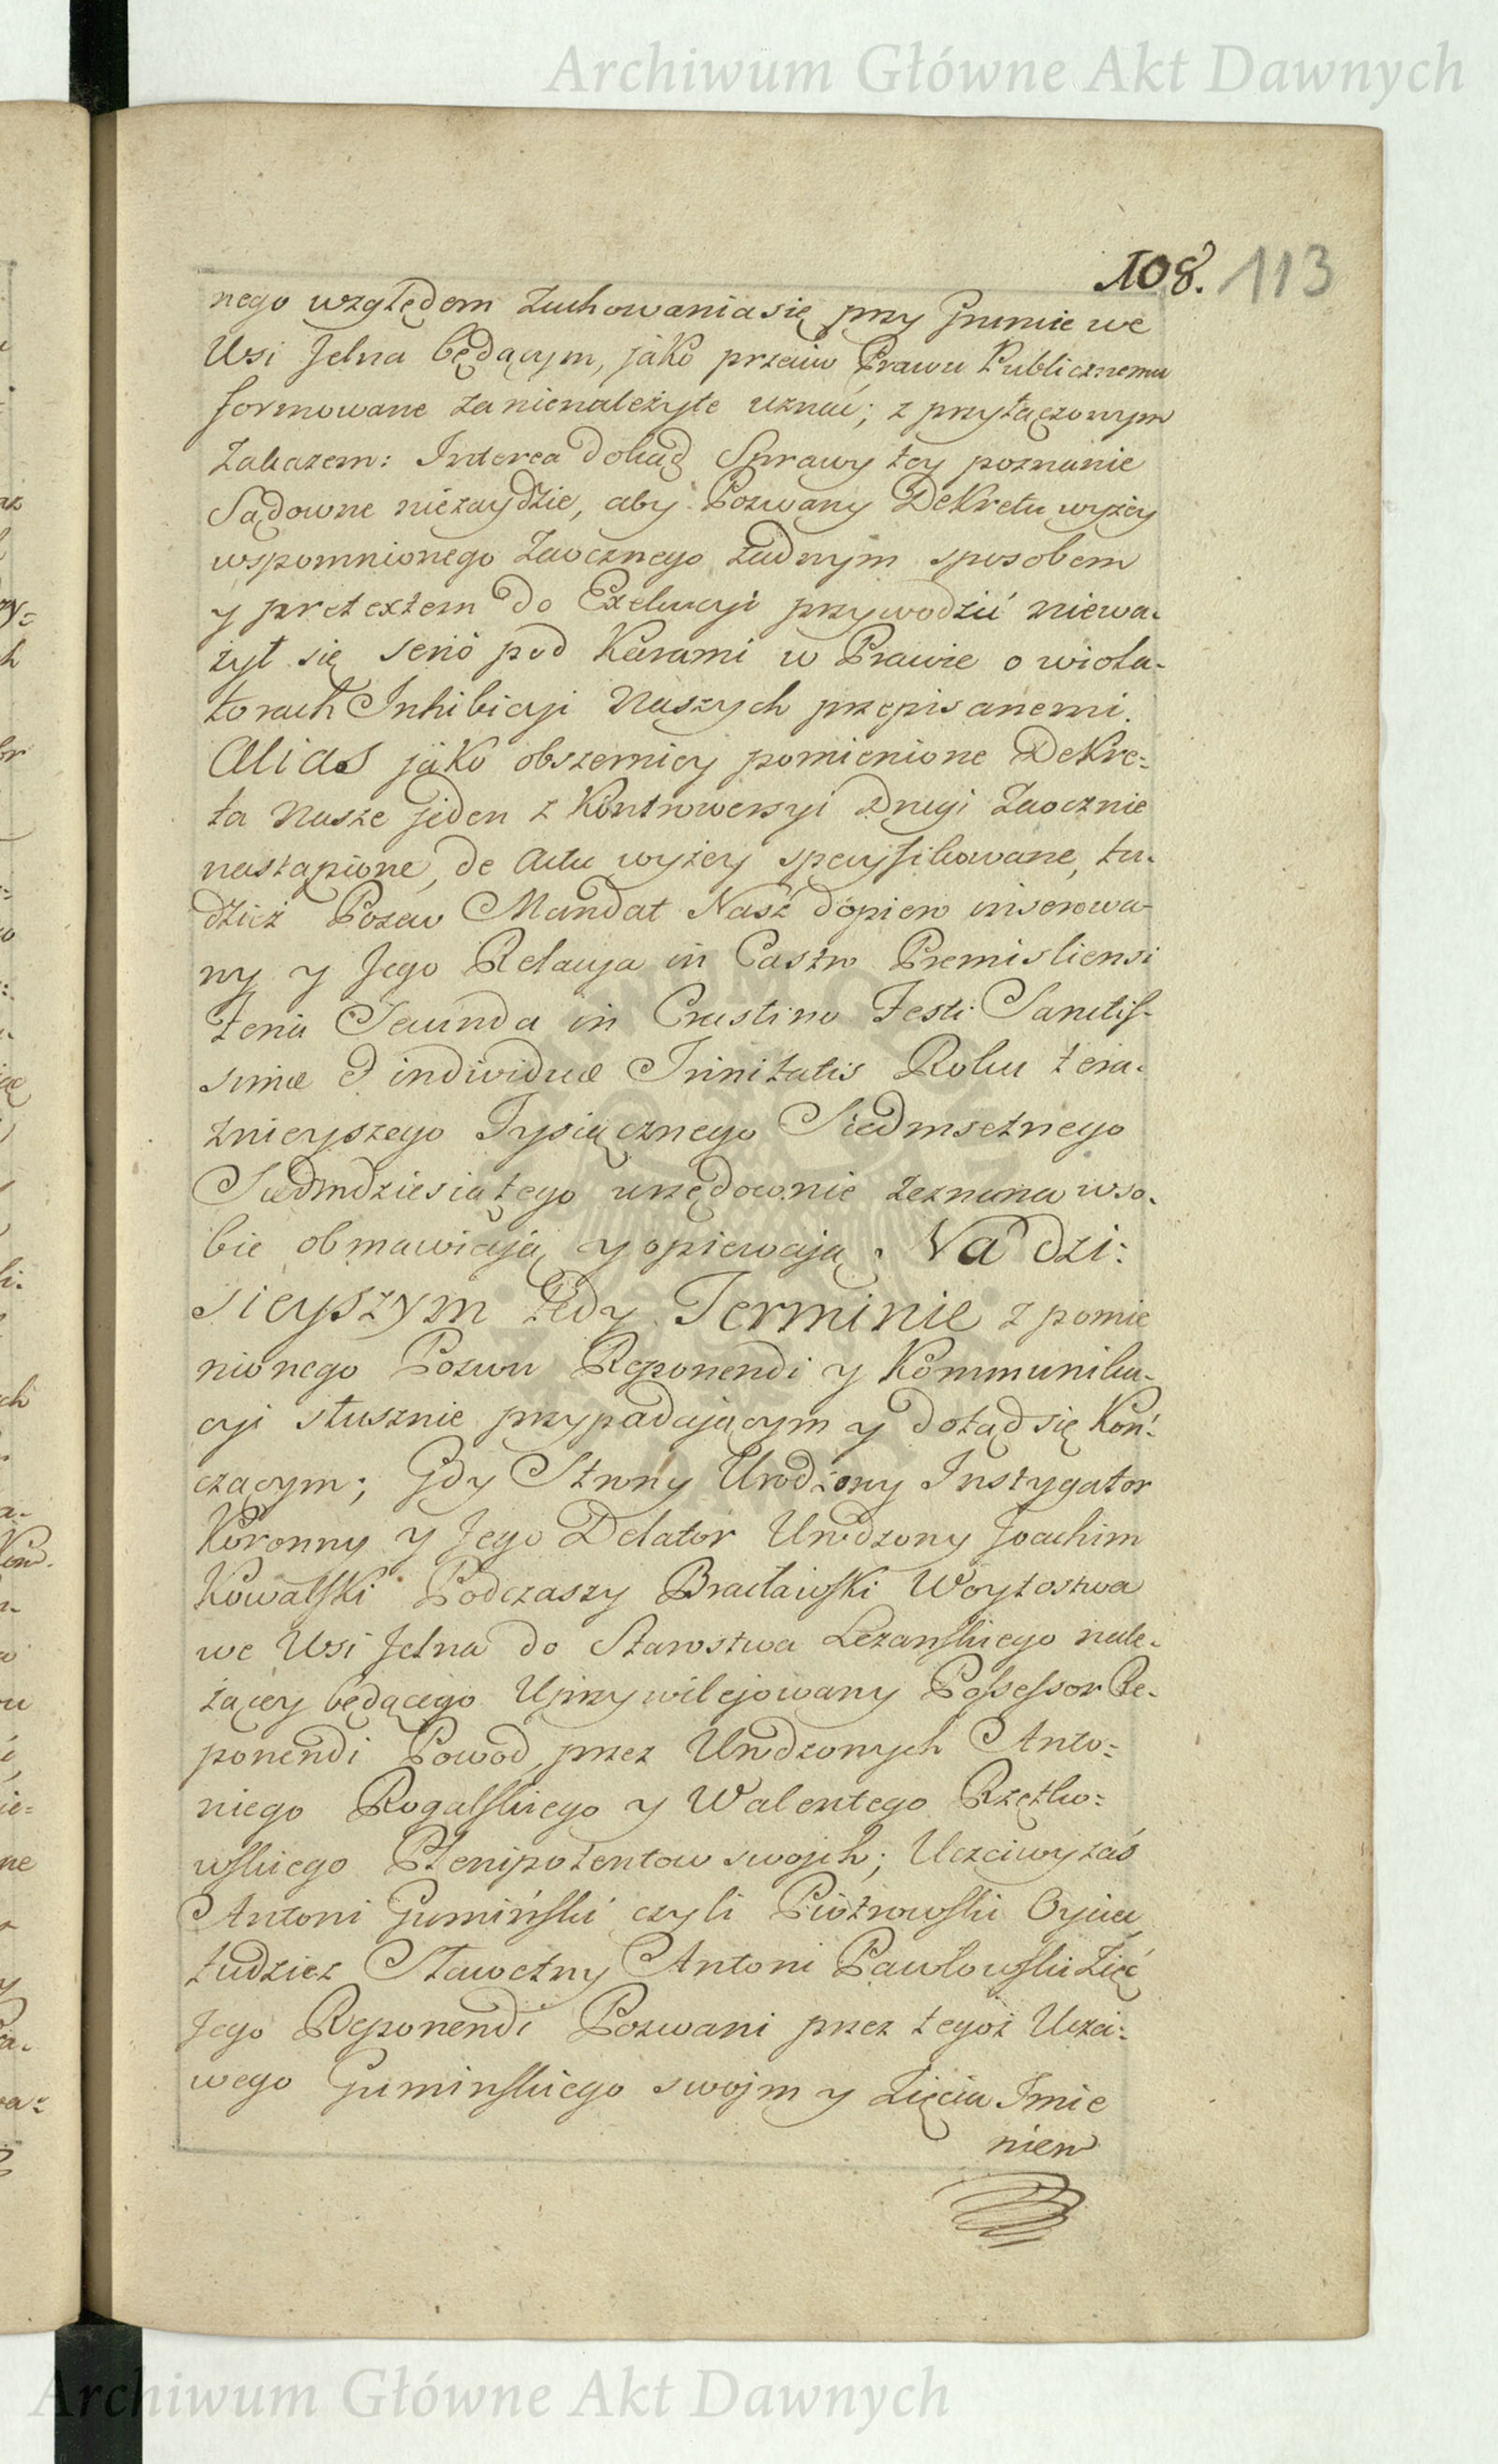 Archiwum Główne Akt Dawnych
108. 113
nego względem zachowania się przy Gruncie we
Wsi Jelna będącym, jako przeciw Prawu Publicznemu
formowane za nienależyte uznać; z przyłączonym
Zakazem: Interea dokąd Sprawy tey poznanie
Sądowne niezaydzie, aby Pozwany Dekretu wyżey
wspomnionego Zaocznego żadnym sposobem
y pretextem do Exekucyi przywodzić niewa-
żył się serio pod Karami w Prawie o wiola-
torach Inhibicyi Naszych przepisanemi.
Alias jako obszerniey pomienione Dekre-
ta Nasze jeden z Kontrowersyi drugi Zaocznie
nastąpione, de Actu wyżey specyfikowane, tu-
dzież Pozew Mandat Nasz dopiero inserowa-
ny y Jego Relacya in Castro Premisliensi
Feria Secunda in Crastino Festi Sanctis-
simæ & individuæ Trinitatis Roku tera-
znieyszego Tysiącznego Siedmsetnego
Siedmdziesiątego urzędownie zeznana w so-
bie obmawiają y opiewają. Na dzi-
sieyszym tedy Terminie z pomie
nionego Pozwu Reponendi y Kommunika-
cyi słusznie przypadającym y dotąd się Koń-
czącym; Gdy Strony Urodzony Instygator
Koronny y Jego Delator Urodzony Joachim
Kowalski Podczaszy Bracławski Woytostwa
we Wsi Jelna do Starostwa Leżanskiego nale-
żącey będącego Uprzywilejowany Possessor Re-
ponendi Powod, przez Urodzonych Anto-
niego Rogalskiego y Walentego Rzętko-
wskiego Plenipotentow swojch; Uczciwy zaś
Antoni Gumiński czyli Piotrowski Oyciec
tudzież Sławetny Antoni Pawłowski Zięć
Jego Reponendi Pozwani przez tegoż Uczci-
wego Guminskiego swojm y Zięcia Jmie
niem
Archiwum Główne Akt Dawnych